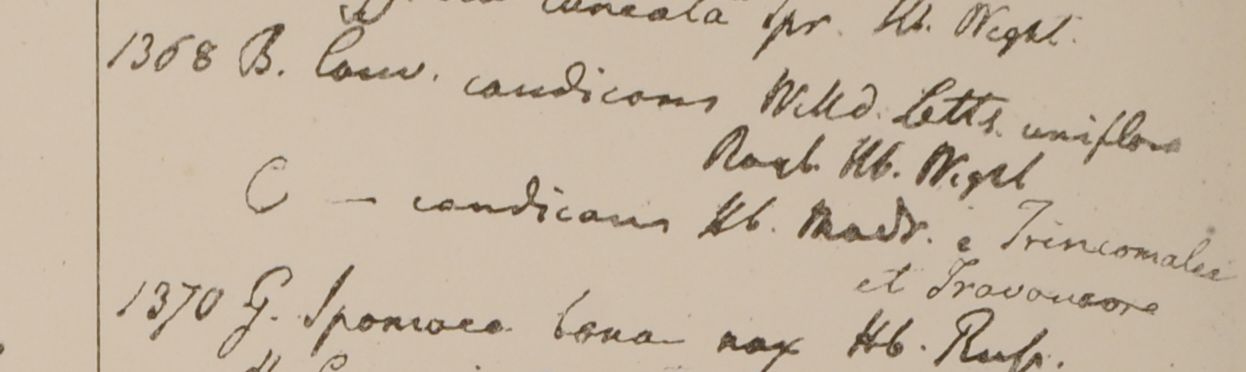 cuneata Spr. Hb. Wight.
1368 B. Conv. candicans Willd. Letts. uniflora
Roxb. Hb. Wight
C — candicans Hb. Madr. e Trincomalee
et Travancore
1370 G. Ipomoea bona nox Hb. Russ.